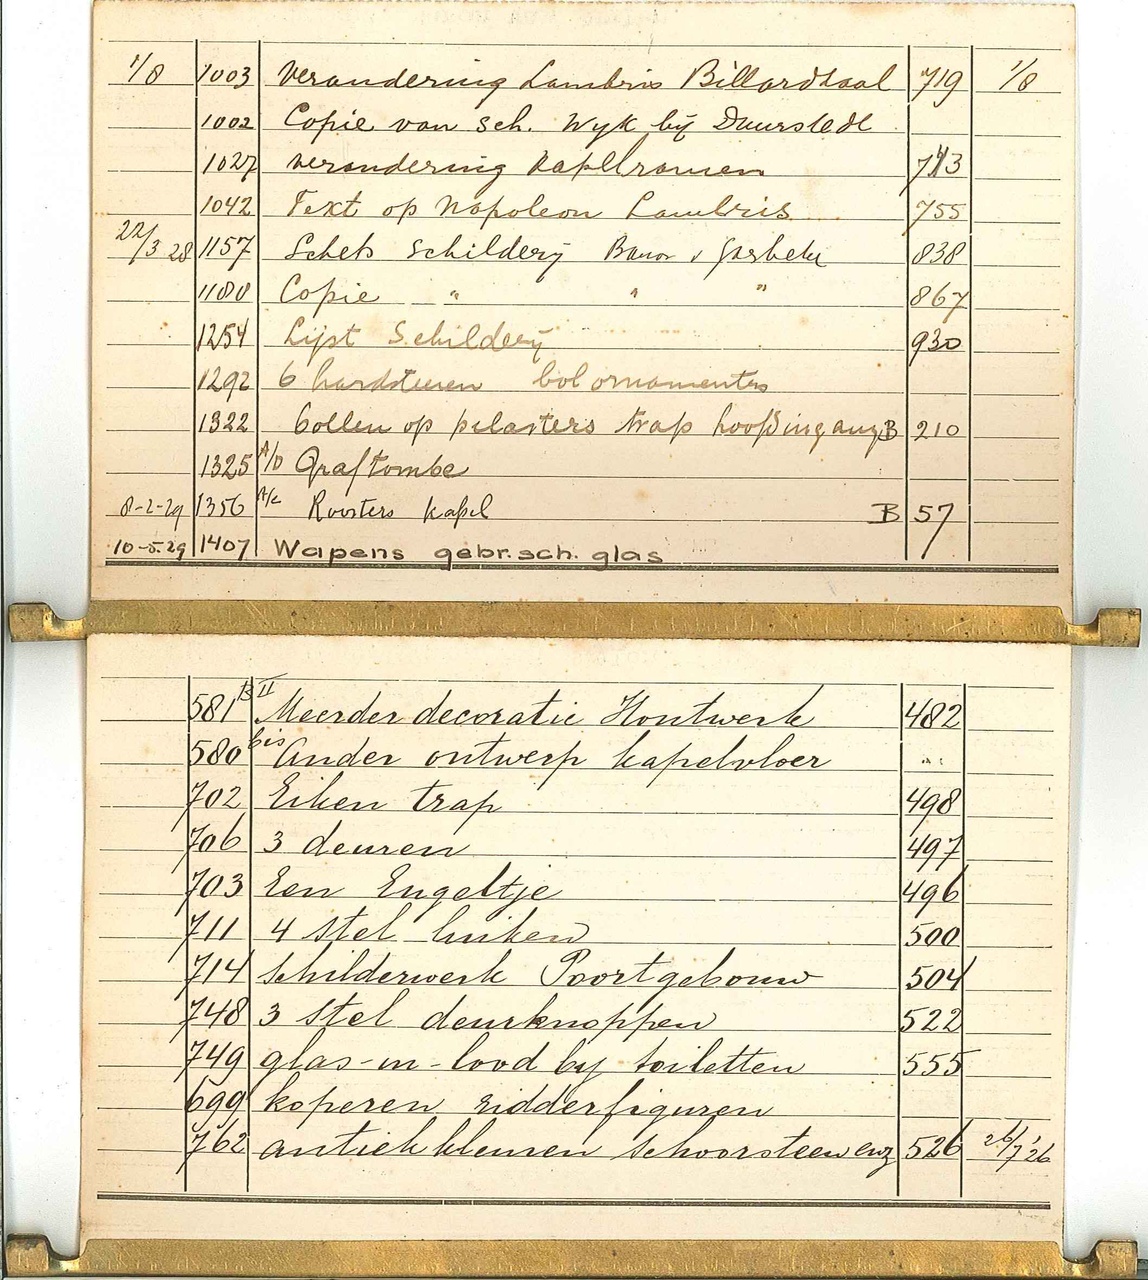 1/8 1003 Verandering Lambris Billardzaal 719 1/8
1002 Copie van Sch. Wyk bij Duurstede
1027 verandering Kapelramen 743
1042 Text op Napoleon Lambris 755
22/3 28 1157 Schets Schilderij Baron v 838
1180 Copie " " " 867
1254 Lijst Schilderij 930
1292 6 hardsteenen bol ornamenten
1322 bollen op pilasters trap hoofdingang B 210
1325 A/D Graftombe
8-2-29 1356 A/c Roosters kapel B 57
10-5-29 1407 Wapens gebr.sch. glas
581 B II Meerder decoratie Houtwerk 482
580 bis Ander ontwerp kapelvloer "
702 Eiken trap 498
706 3 deuren 497
703 Een Engeltje 496
711 4 stel luiken 500
714 Schilderwerk Poortgebouw 504
748 3 stel deurknoppen 522
749 glas-in-lood by toiletten 555
699 koperen ridderfiguren
762 antiek kleuren schoorsteen enz 526 26/7 '26